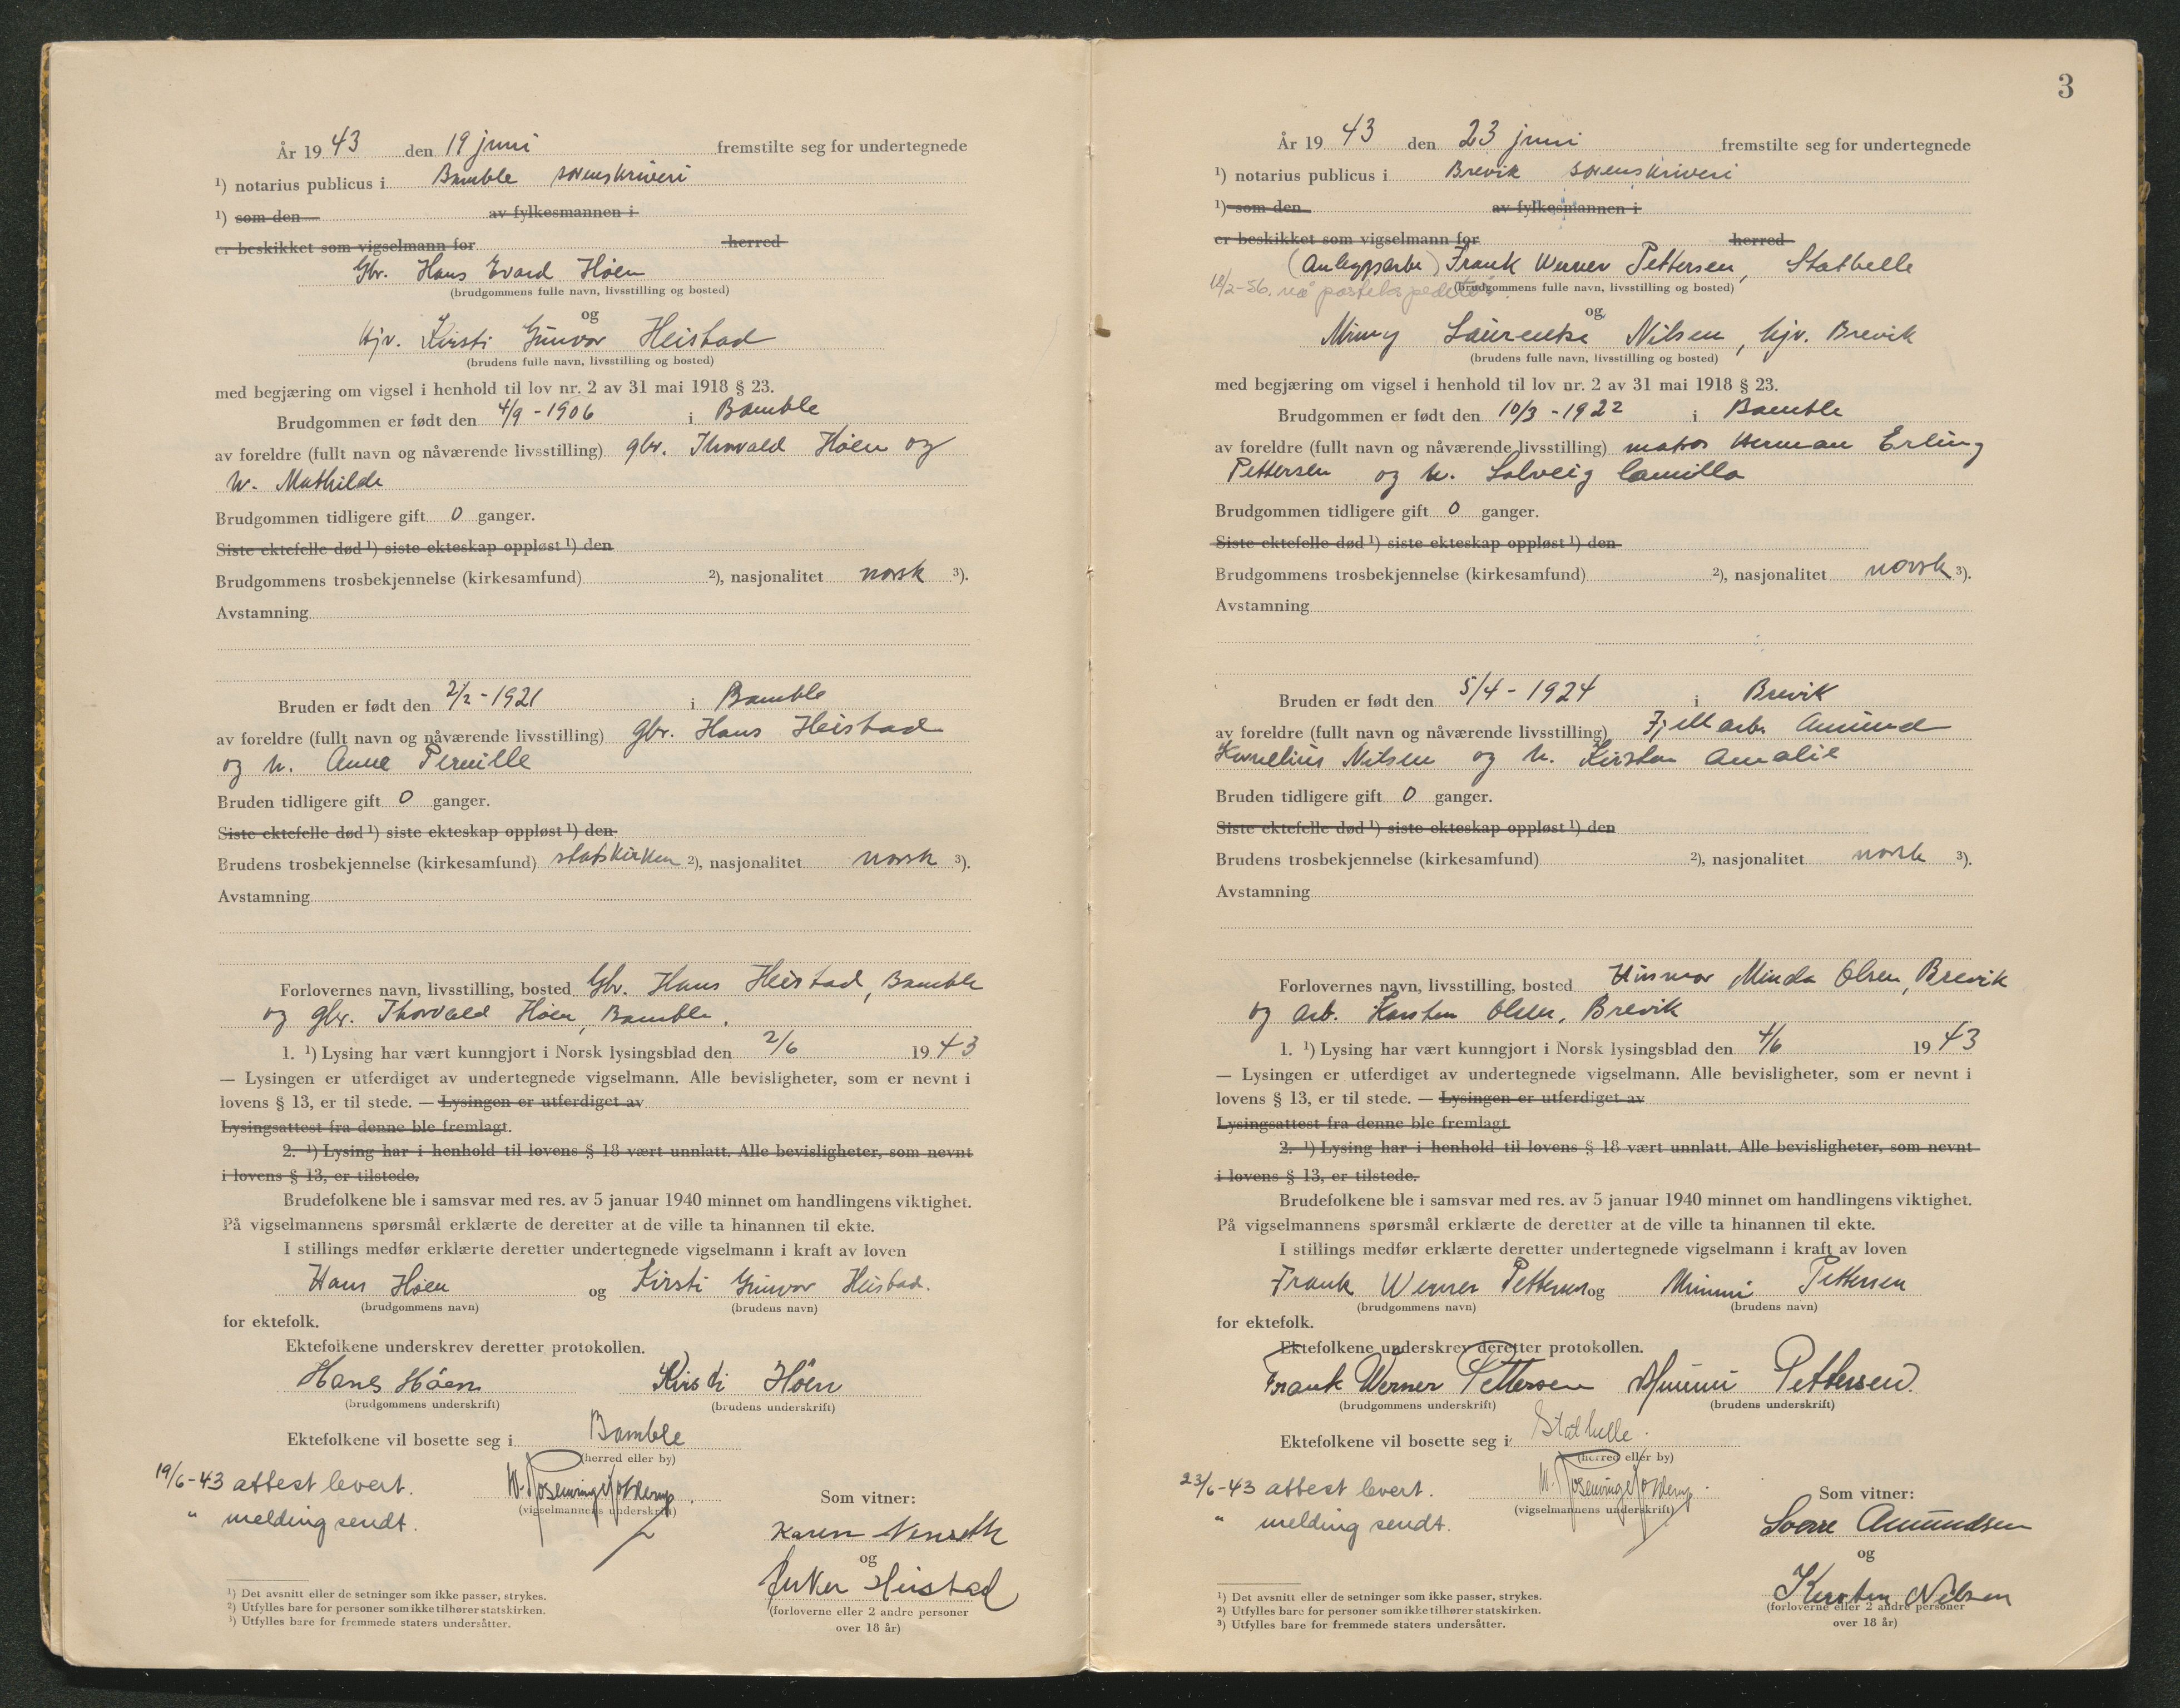 År 19 43 den 19 juni fremstilte seg for undertegnede
¹) notarius publicus i Bamble sorenskriveri
¹) som den av fylkesmannen i
er beskikket som vigselmann for herred
Gbr. Hans Evard Höen
(brudgommens fulle navn, livsstilling og bosted)
og
Hjv. Kirsti Gunvor Heistad
(brudens fulle navn, livsstilling og bosted)
med begjæring om vigsel i henhold til lov nr. 2 av 31 mai 1918 § 23.
Brudgommen er født den 4/9 - 1906 i Bamble
av foreldre (fullt navn og nåværende livsstilling) gbr. Thorvald Höen og
h. Mathilde
Brudgommen tidligere gift 0 ganger.
Siste ektefelle død ¹) siste ekteskap oppløst ¹) den
Brudgommens trosbekjennelse (kirkesamfund) ²), nasjonalitet norsk ³).
Avstamning
Bruden er født den 2/2 - 1921 i Bamble
av foreldre (fullt navn og nåværende livsstilling) gbr. Hans Heistad
og h. Anne Pernille
Bruden tidligere gift 0 ganger.
Siste ektefelle død ¹) siste ekteskap oppløst ¹) den
Brudens trosbekjennelse (kirkesamfund) statskirken ²), nasjonalitet norsk ³).
Avstamning
Forlovernes navn, livsstilling, bosted Gbr. Hans Heistad, Bamble
og gbr. Thorvald Höen, Bamble.
1. ¹) Lysing har vært kunngjort i Norsk lysingsblad den 2/6 19 43
— Lysingen er utferdiget av undertegnede vigselmann. Alle bevisligheter, som er nevnt i
lovens § 13, er til stede. — Lysingen er utferdiget av
Lysingsattest fra denne ble fremlagt.
2. ¹) Lysing har i henhold til lovens § 18 vært unnlatt. Alle bevisligheter, som nevnt
i lovens § 13, er tilstede.
Brudefolkene ble i samsvar med res. av 5 januar 1940 minnet om handlingens viktighet.
På vigselmannens spørsmål erklærte de deretter at de ville ta hinannen til ekte.
I stillings medfør erklærte deretter undertegnede vigselmann i kraft av loven
Hans Höen og Kirsti Gunvor Heistad.
(brudgommens navn) (brudens navn)
for ektefolk.
Ektefolkene underskrev deretter protokollen.
Hans Höen Kirsti Höen
(brudgommens underskrift) (brudens underskrift)
Ektefolkene vil bosette seg i Bamble
(herred eller by)
19/6-43 attest levert.
" melding sendt.
(vigselmannens underskrift)
Som vitner:
Karen
og
Heistad
(forloverne eller 2 andre personer
over 18 år)
¹) Det avsnitt eller de setninger som ikke passer, strykes.
²) Utfylles bare for personer som ikke tilhører statskirken.
³) Utfylles bare for fremmede staters undersåtter.
3
År 19 43 den 23 juni fremstilte seg for undertegnede
¹) notarius publicus i Brevik sorenskriveri
¹) som den av fylkesmannen i
er beskikket som vigselmann for herred
(Anleggsarb.) Frank Werner Pettersen, Stathelle
18/2-56. nå postekspeditør. (brudgommens fulle navn, livsstilling og bosted)
og
Mimmy Laurentse Nilsen, hjv. Brevik
(brudens fulle navn, livsstilling og bosted)
med begjæring om vigsel i henhold til lov nr. 2 av 31 mai 1918 § 23.
Brudgommen er født den 10/3 - 1922 i Bamble
av foreldre (fullt navn og nåværende livsstilling) matros Herman Erling
Pettersen og h. Solveig Camilla
Brudgommen tidligere gift 0 ganger.
Siste ektefelle død ¹) siste ekteskap oppløst ¹) den
Brudgommens trosbekjennelse (kirkesamfund) ²), nasjonalitet norsk ³).
Avstamning
Bruden er født den 5/4 - 1924 i Brevik
av foreldre (fullt navn og nåværende livsstilling) Fjellarb. Amund
Kornelius Nilsen og h. Kirsten Amalie
Bruden tidligere gift 0 ganger.
Siste ektefelle død ¹) siste ekteskap oppløst ¹) den
Brudens trosbekjennelse (kirkesamfund) ²), nasjonalitet norsk ³).
Avstamning
Forlovernes navn, livsstilling, bosted Husmor Minda Olsen, Brevik
og arb. Karsten Olsen, Brevik
1. ¹) Lysing har vært kunngjort i Norsk lysingsblad den 4/6 19 43
— Lysingen er utferdiget av undertegnede vigselmann. Alle bevisligheter, som er nevnt i
lovens § 13, er til stede. — Lysingen er utferdiget av
Lysingsattest fra denne ble fremlagt
2. ¹) Lysing har i henhold til lovens § 18 vært unnlatt. Alle bevisligheter, som nevnt
i lovens § 13, er tilstede.
Brudefolkene ble i samsvar med res. av 5 januar 1940 minnet om handlingens viktighet.
På vigselmannens spørsmål erklærte de deretter at de ville ta hinannen til ekte.
I stillings medfør erklærte deretter undertegnede vigselmann i kraft av loven
Frank Werner Pettersen og Mimmi Pettersen
(brudgommens navn) (brudens navn)
for ektefolk.
Ektefolkene underskrev deretter protokollen.
Frank Werner Pettersen Mimmi Pettersen.
(brudgommens underskrift) (brudens underskrift)
Ektefolkene vil bosette seg i Stathelle.
(herred eller by)
23/6-43 attest levert.
" melding sendt.
(vigselmannens underskrift)
Som vitner:
Sverre Amundsen
og
Kirsten Nilsen
(forloverne eller 2 andre personer
over 18 år)
¹) Det avsnitt eller de setninger som ikke passer, strykes.
²) Utfylles bare for personer som ikke tilhører statskirken.
³) Utfylles bare for fremmede staters undersåtter.